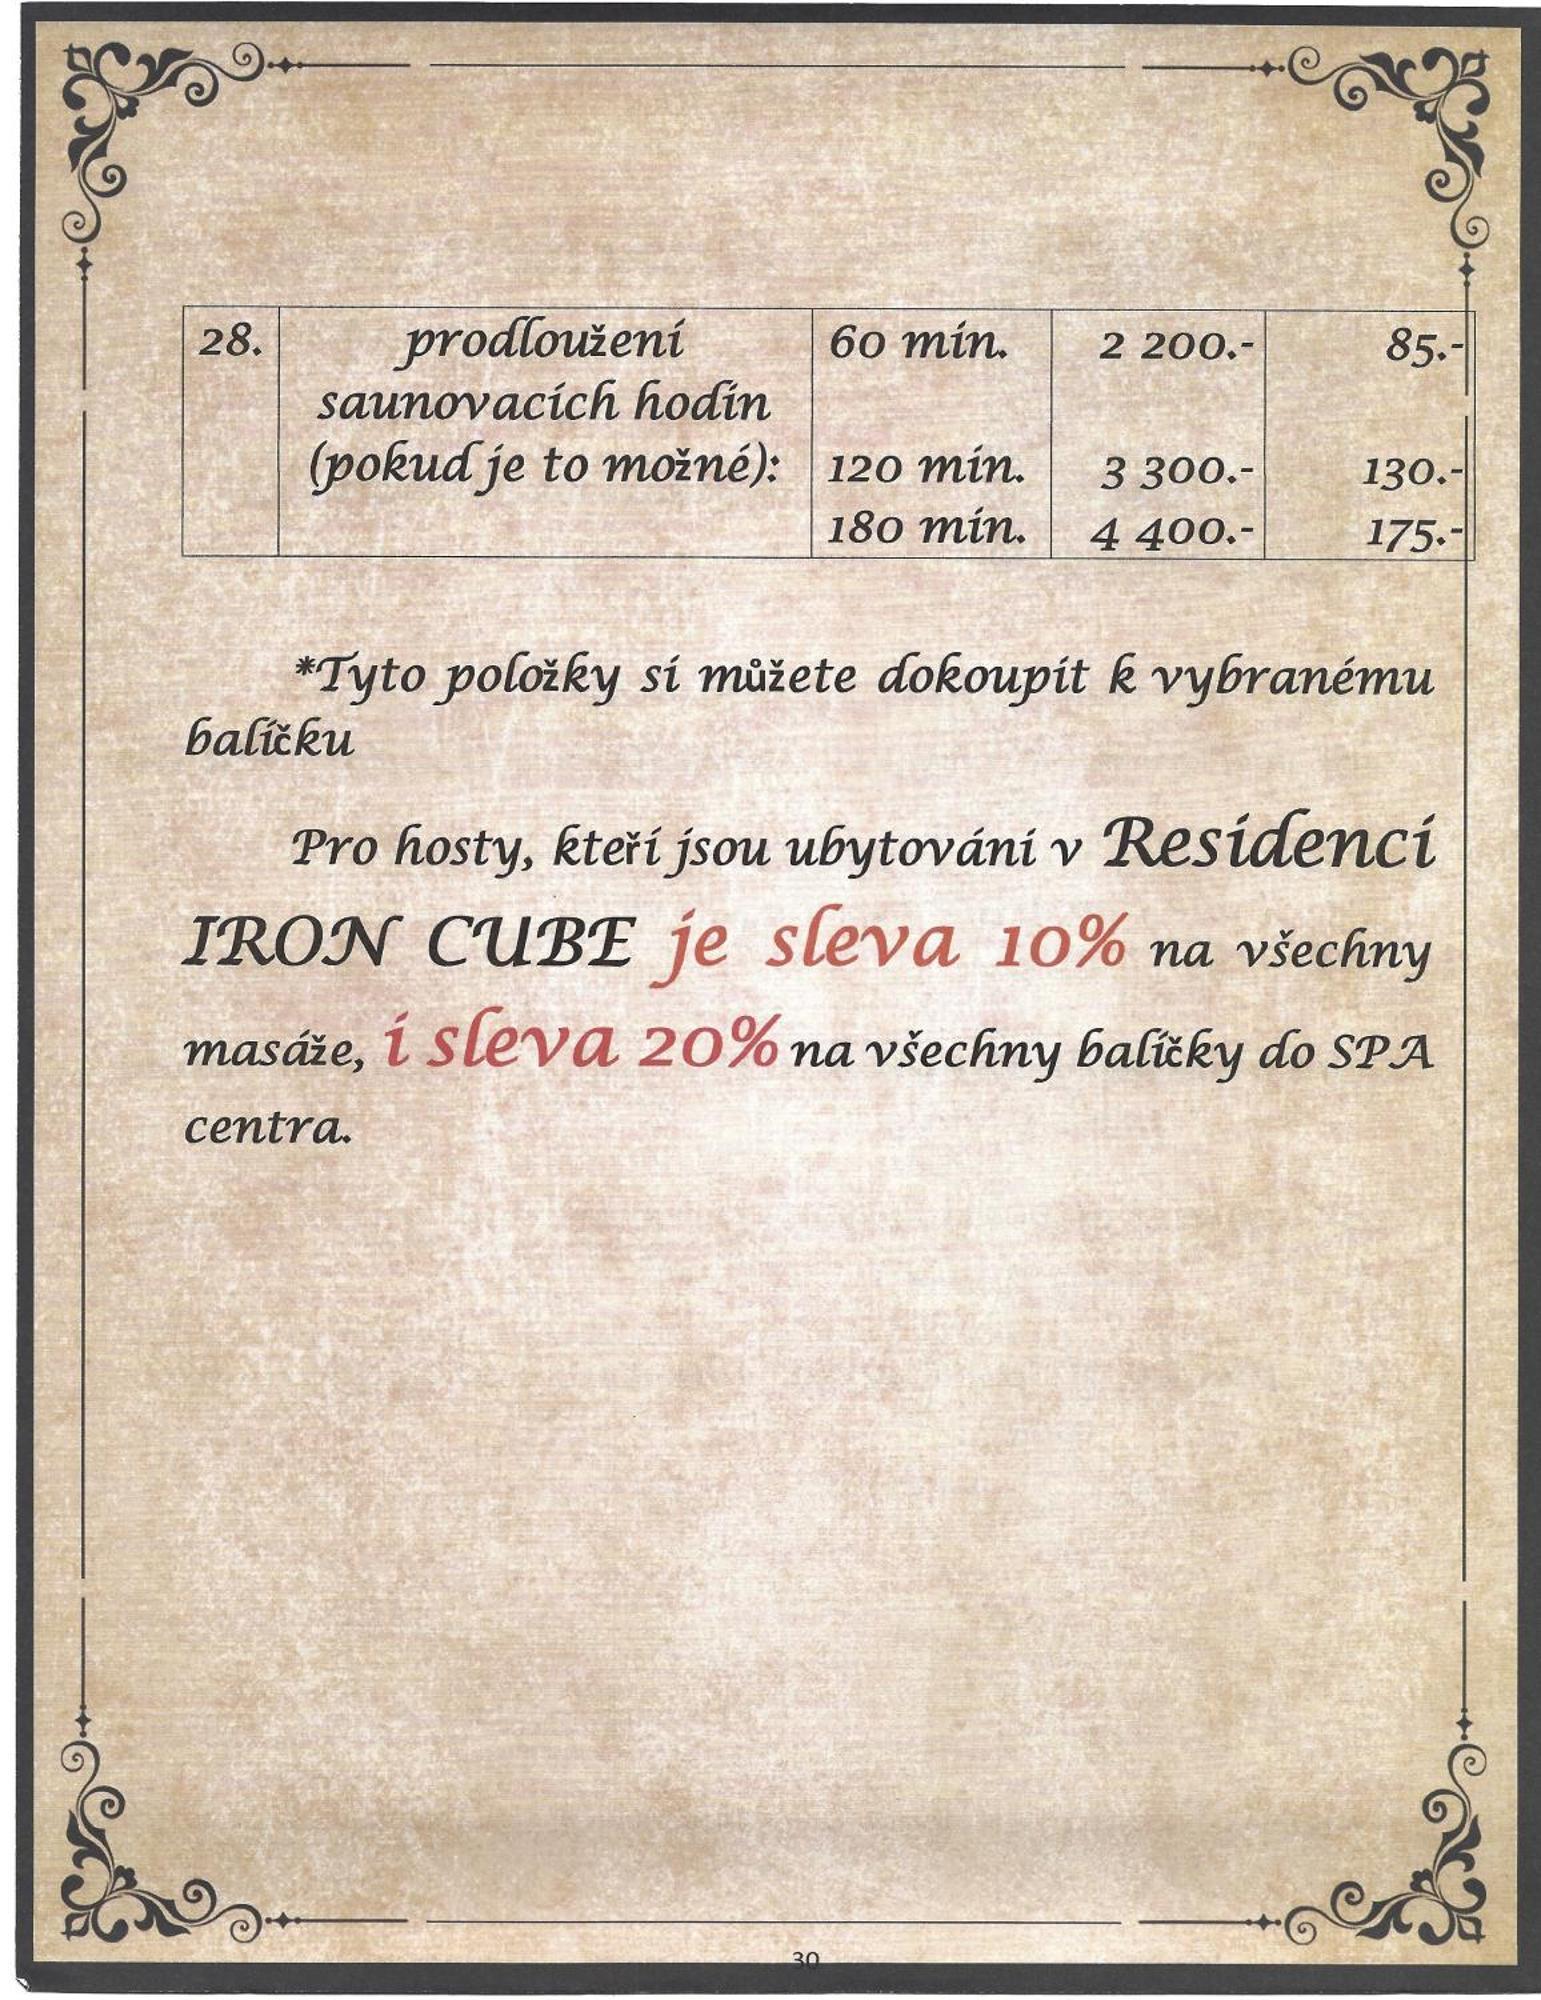 28. prodloužení 60 min. 2 200.- 85.-
saunovacích hodin
(pokud je to možné): 120 min. 3 300.- 130.-
180 min. 4 400.- 175.-
*Tyto položky si můžete dokoupit k vybranému
balíčku
Pro hosty, kteří jsou ubytováni v Residenci
IRON CUBE je sleva 10% na všechny
masáže, i sleva 20% na všechny balíčky do SPA
centra.
30